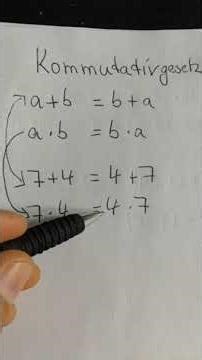 Kommutativgesetz
a+b = b+a
a·b = b·a
7+4 = 4+7
7·4 = 4·7